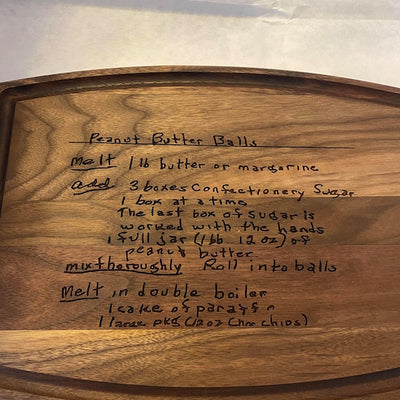 Peanut Butter Balls
melt 1 lb butter or margarine
add 3 boxes Confectionery Sugar
1 box at a time
The last box of sugar is
worked with the hands
1 full jar (1 lb. 12 oz) of
peanut butter
mix thoroughly Roll into balls
Melt in double boiler
1 cake of
1 large pkg (12 oz Chips)